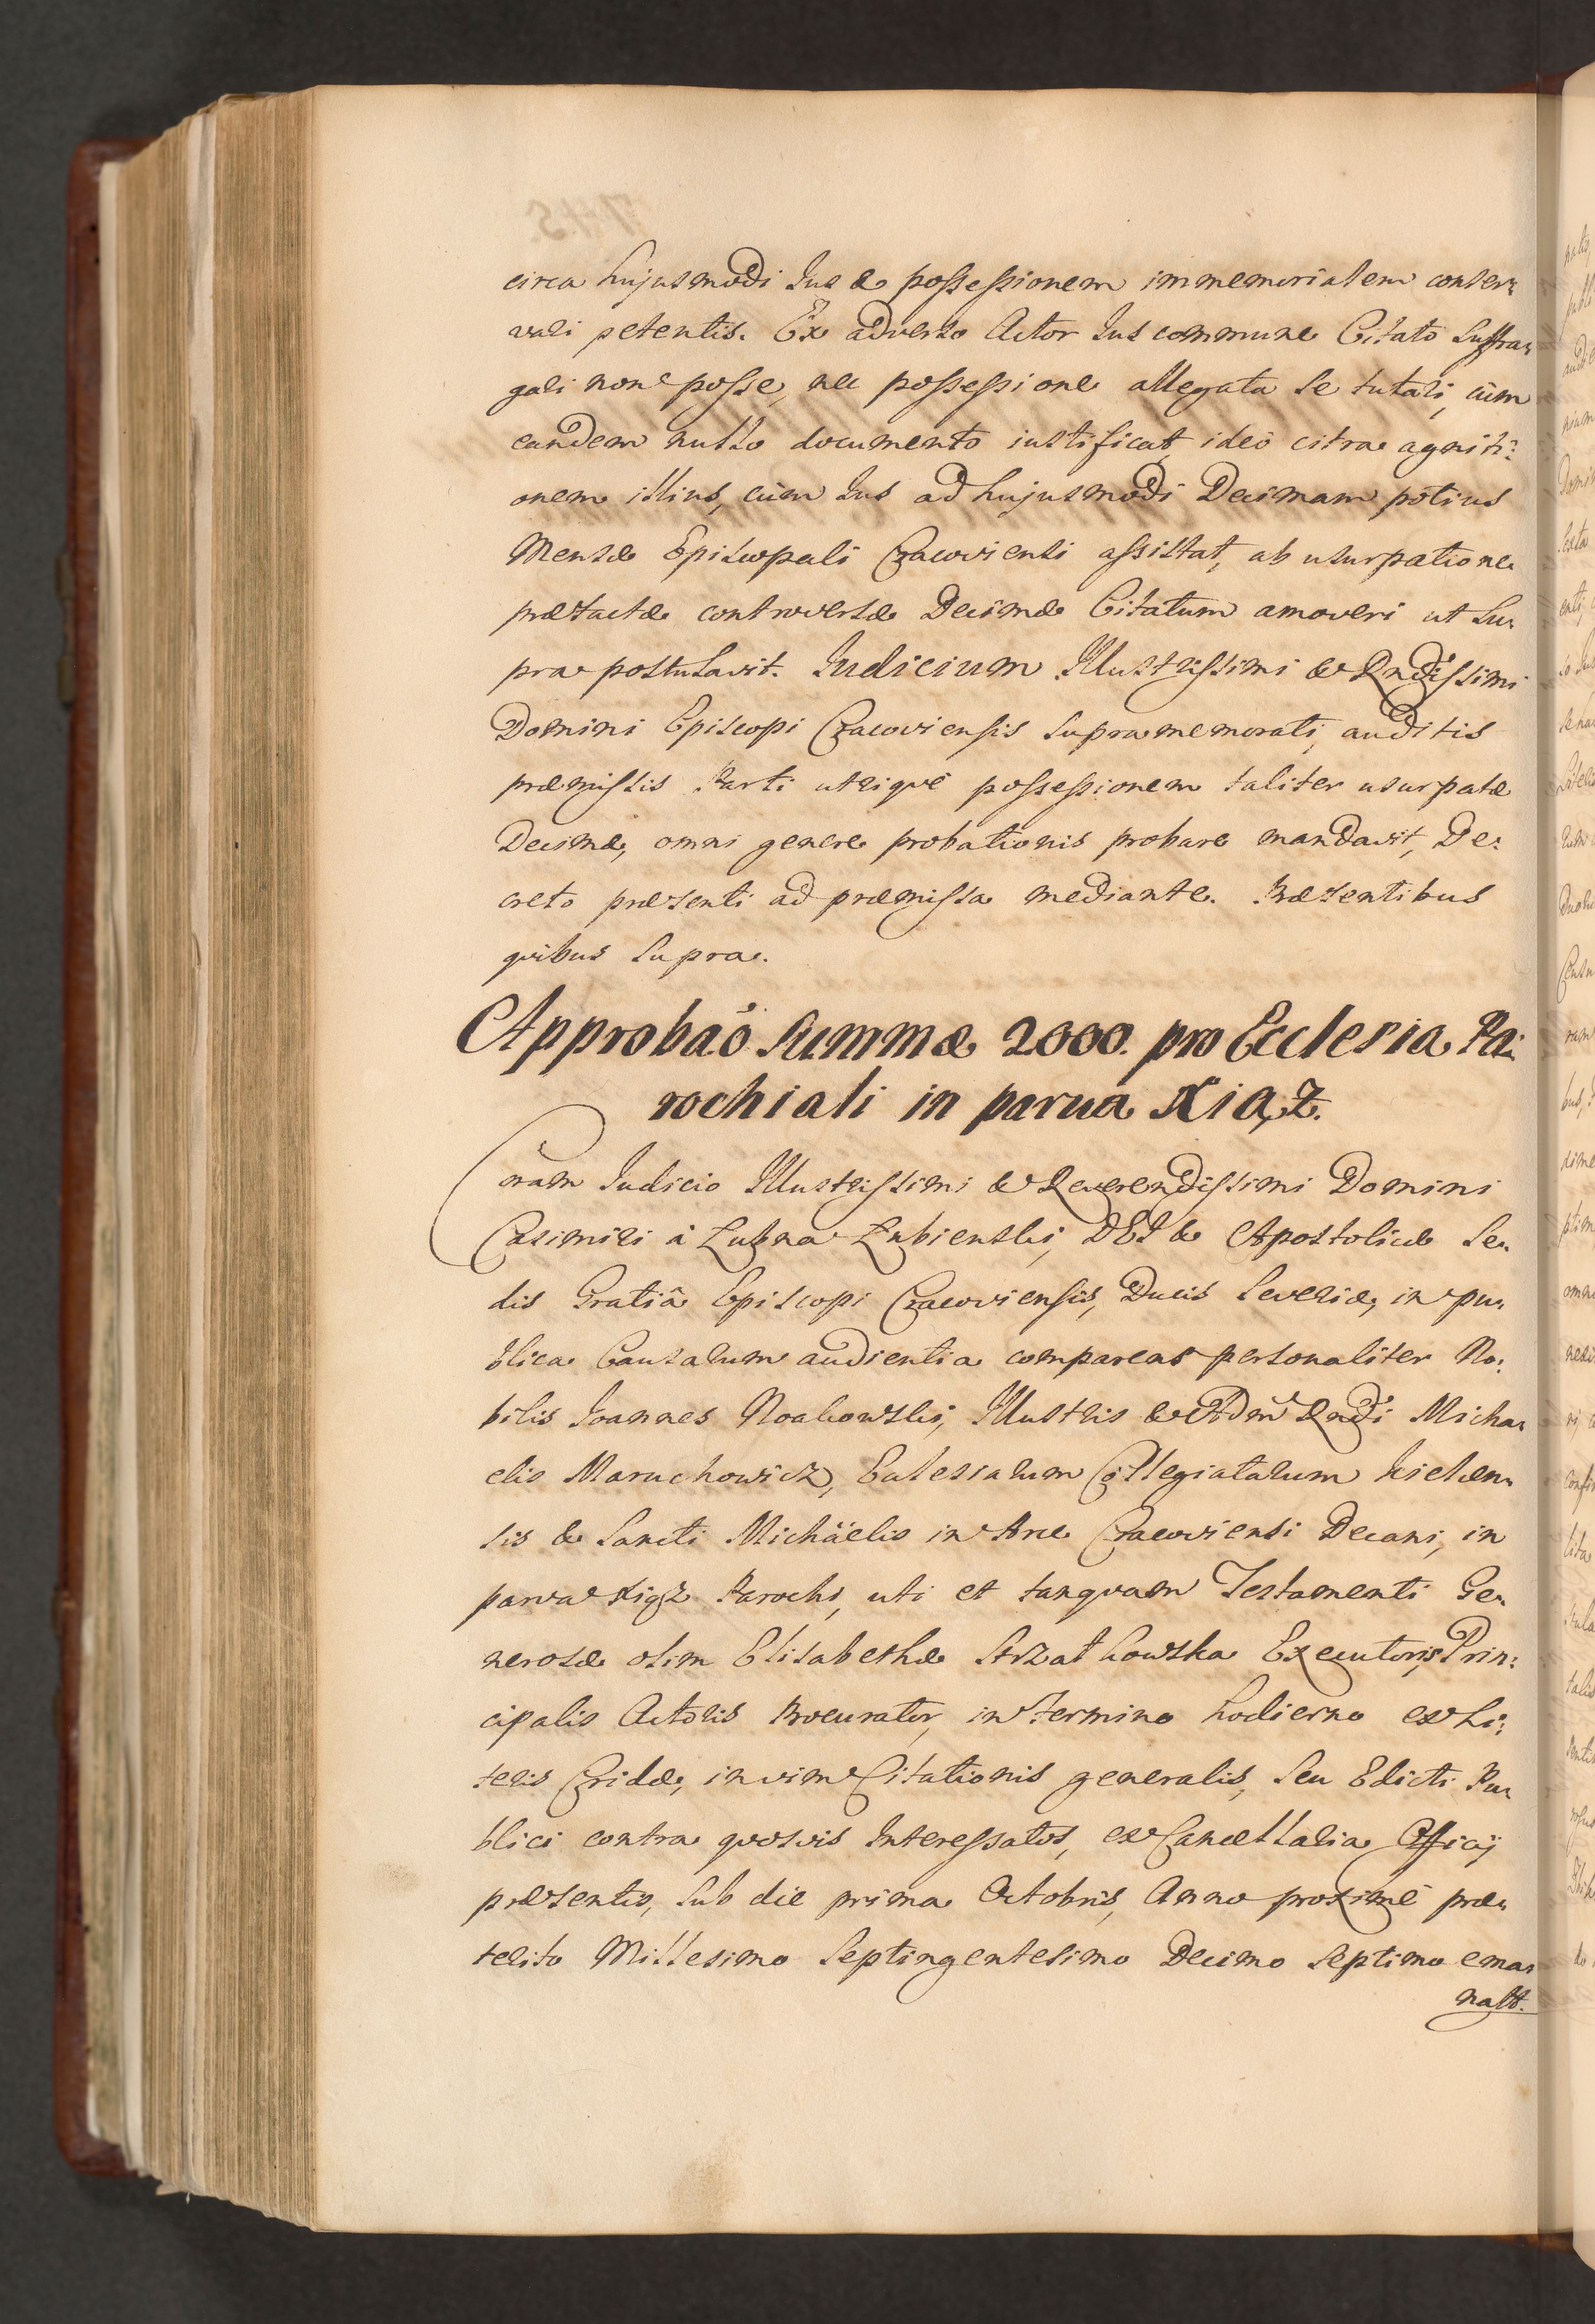 circa hujusmodi Jus & possessionem immemorialem conser-
vari petentis. Ex adverso Actor Jus commune Citato suffra-
gari non posse, nec possessione allegata se tutari, cùm
eandem nullo documento iustificat, ideò citra agniti-
onem illius, cùm Jus ad hujusmodi Decimam potius
Mensæ Episcopali Cracoviensi assistat, ab usurpatione
prætactæ controversæ Decimæ Citatum amoveri ut su-
pra postulavit. Judicium Illustrissimi & Rndissimi
Domini Episcopi Cracoviensis supramemorati, auditis
præmissis Parti utriqve possessionem taliter usurpatæ
Decimæ, omni genere probationis probare mandavit, De-
creto præsenti ad præmissa mediante. Præsentibus
qvibus supra.
Approbaõ Summæ 2000. pro Ecclesia Pa-
rochiali in parva Xiąz.
Coram Judicio Illustrissimi & Reverendissimi Domini
Casimiri à Łubna Łubienski, DEI & Apostolicæ Se-
dis Gratiâ Episcopi Cracoviensis, Ducis Severiæ, in pu-
blica Causarum audientia comparens personaliter No-
bilis Joannes Noakowski, Illustris & Adm Rndi Micha-
elis Maruchowicz, Ecclesiarum Collegiatarum Kielcen-
sis & Sancti Michäelis in Arce Cracoviensi Decani, in
parva Xiąz Parochi, uti et tanqvam Testamenti Ge-
nerosæ olim Elisabethæ Strzałkowska Executoris, Prin-
cipalis Actoris Procurator, in termino hodierno ex Li-
teris Cridæ, in vim Citationis generalis, seu Edicti Pu-
blici contra qvosvis Interessatos, ex Cancellaria Officij
præsentis, sub die prima Octobris, Anno proximè præ-
terito Millesimo Septingentesimo Decimo Septimo ema-
natt.